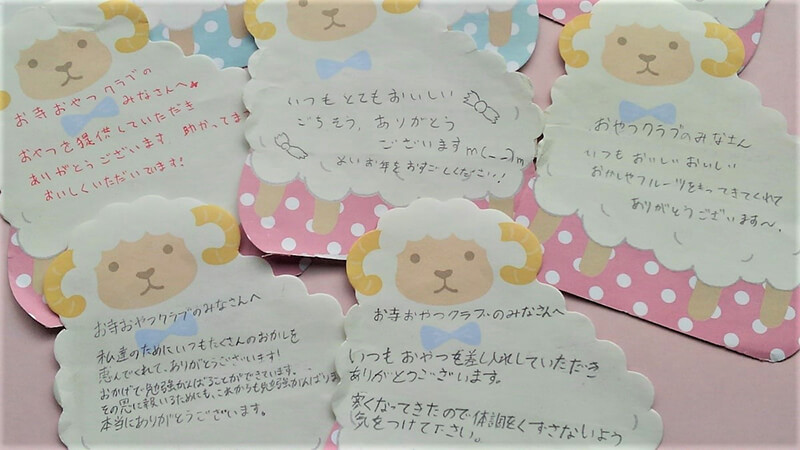 お寺おやつクラブの
みなさんへ
おやつを提供していただき
ありがとうございます。助かってます
おいしくいただいてます!
いつもとてもおいしい
ごちそう、ありがとう
ございますm(_ _)m
よいお年をおすごしください!
おやつクラブのみなさん
いつもおいしいおいしい
おかしやフルーツをもってきてくれて
ありがとうございます〜。
お寺おやつクラブのみなさんへ
私達のためにいつもたくさんのおかしを
恵んでくれて、ありがとうございます!
おかげで勉強がんばることができています。
その恩に報いるためにも、これからも勉強がんばります
本当にありがとうございます。
お寺おやつクラブのみなさんへ
いつもおやつを差し入れしていただき
ありがとうございます。
寒くなってきたので体調をくずさないよう
気をつけて下さい。